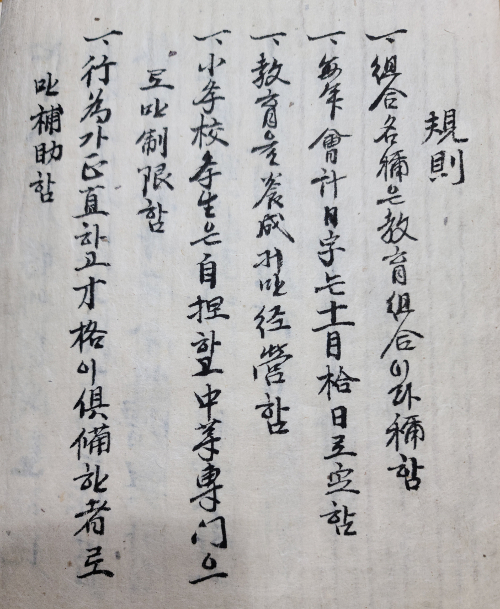 規則
一、組合名稱은敎育組合이라稱함
一、每年會計日字는十一月拾日로定함
一、敎育을養成키로経營함
一、小学校学生은自担하고中等專门으
로만制限함
一、行為가正直하고才格이俱備한者로
만補助함